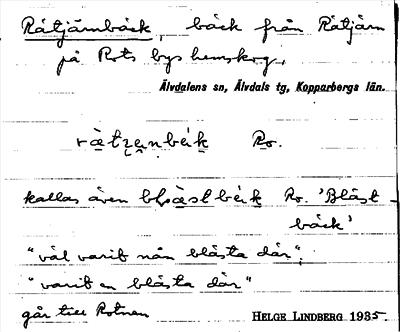 Råtjärnbäck, bäck från Råtjärn
på Rots bys hemskog.
Älvdalens sn, Älvdals tg, Kopparbergs län.
Ro.
kallas även Ro. 'Bläst-
bäck'
"väl varit nån blästa där";
"varit en blästa där"
går till Rotnen
HELGE LINDBERG 1935.